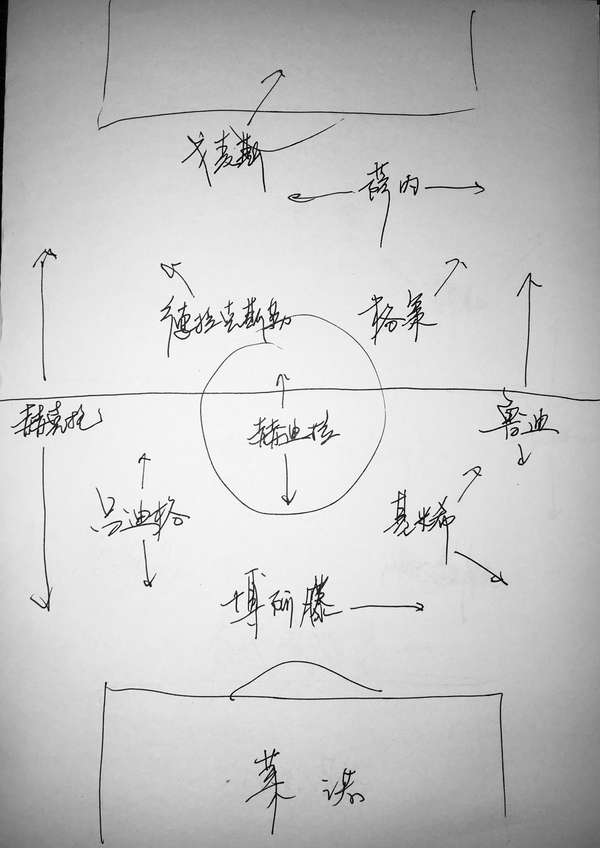 戈麦斯
萨内
德拉克斯勒
格策
赫克托
赫迪拉
鲁迪
吕迪格
基米希
博阿滕
莱诺